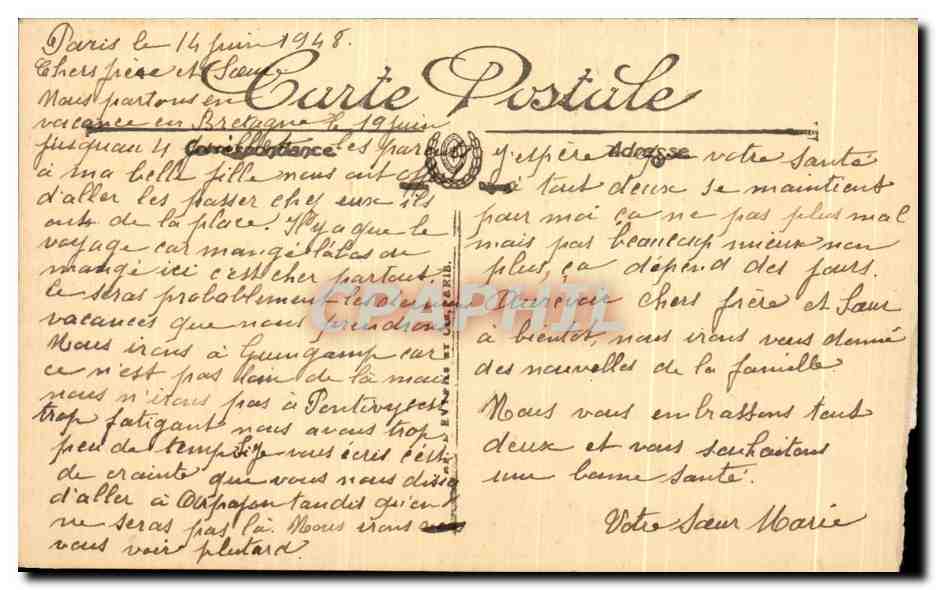 Paris le 14 juin 1948.
Chers frère et Sœur
Carte Postale
Nous partons en
vacance en Bretagne le 19 juin
Correspondance
Adresse
jusquau 4 les parents
à ma belle fille nous ont offer
d'aller les passer chez eux ils
ont de la place. Il y a que le
voyage car mangé labas ou
mangé ici c'est cher partout
ce seras probablement les dernieres
vacances que nous prendrons
Nous irons à Guingamp car
ce n'est pas loin de là mais
nous n'irons pas à Pontivy c'est
trop fatigant nous avons trop
peu de temp. Si je vous écris c'est
de crainte que vous nous disiez
d'aller à Arpajon tandis qu'on
ne seras pas là. Nous irons
vous voir plutard.
j'espère que votre santé
à tout deux se maintient
pour moi ça ne pas plus mal
mais pas beaucoup mieux non
plus, ça dépend des jours.
Aurevoir chers frère et Sœur
à bientot, nous irons vous donné
des nouvelles de la famille
Nous vous embrassons tout
deux et vous souhaitons
une bonne santé.
Votre Sœur Marie
CPAPHIL